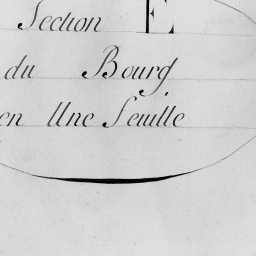 Section E
du Bourg
en Une Feuille